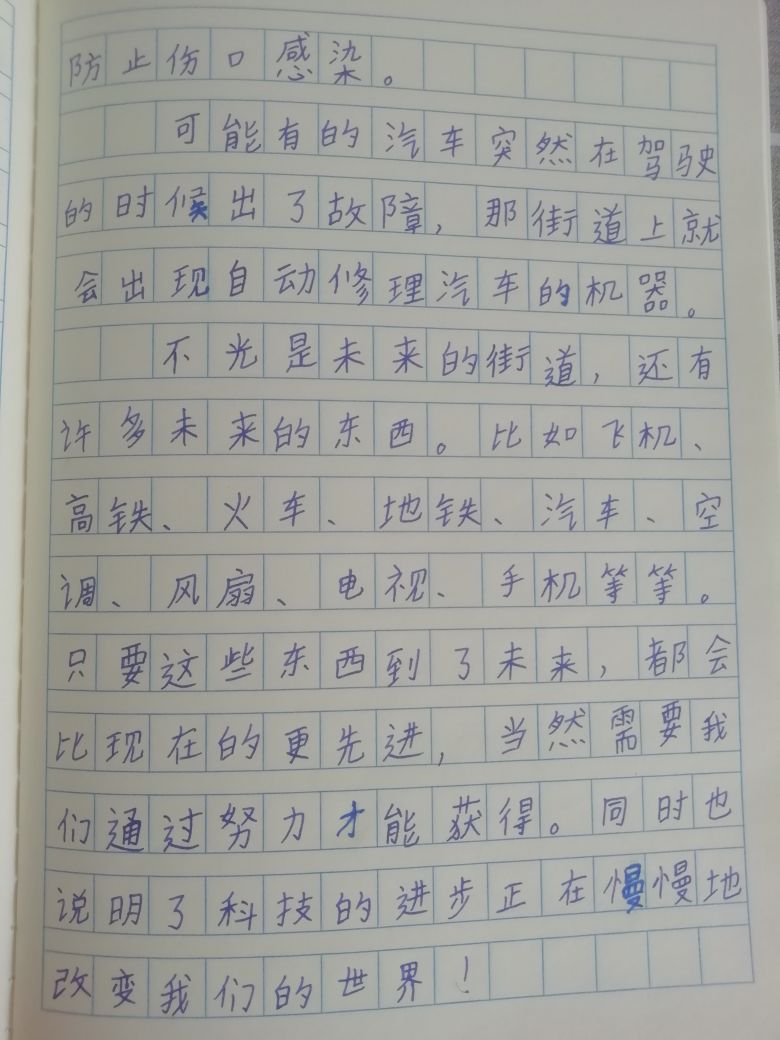 防止伤口感染。
可能有的汽车突然在驾驶
的时候出了故障，那街道上就
会出现自动修理汽车的机器。
不光是未来的街道，还有
许多未来的东西。比如飞机、
高铁、火车、地铁、汽车、空
调、风扇、电视、手机等等。
只要这些东西到了未来，都会
比现在的更先进，当然需要我
们通过努力才能获得。同时也
说明了科技的进步正在慢慢地
改变我们的世界！